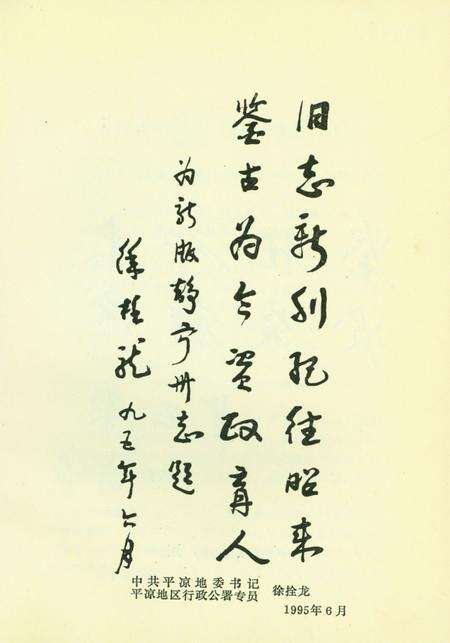 旧志新刊纪往昭来
鉴古为今资政育人
为新版静宁州志题
徐拴龙 九五年六月
中共平凉地委书记
平凉地区行政公署专员 徐拴龙
1995年6月